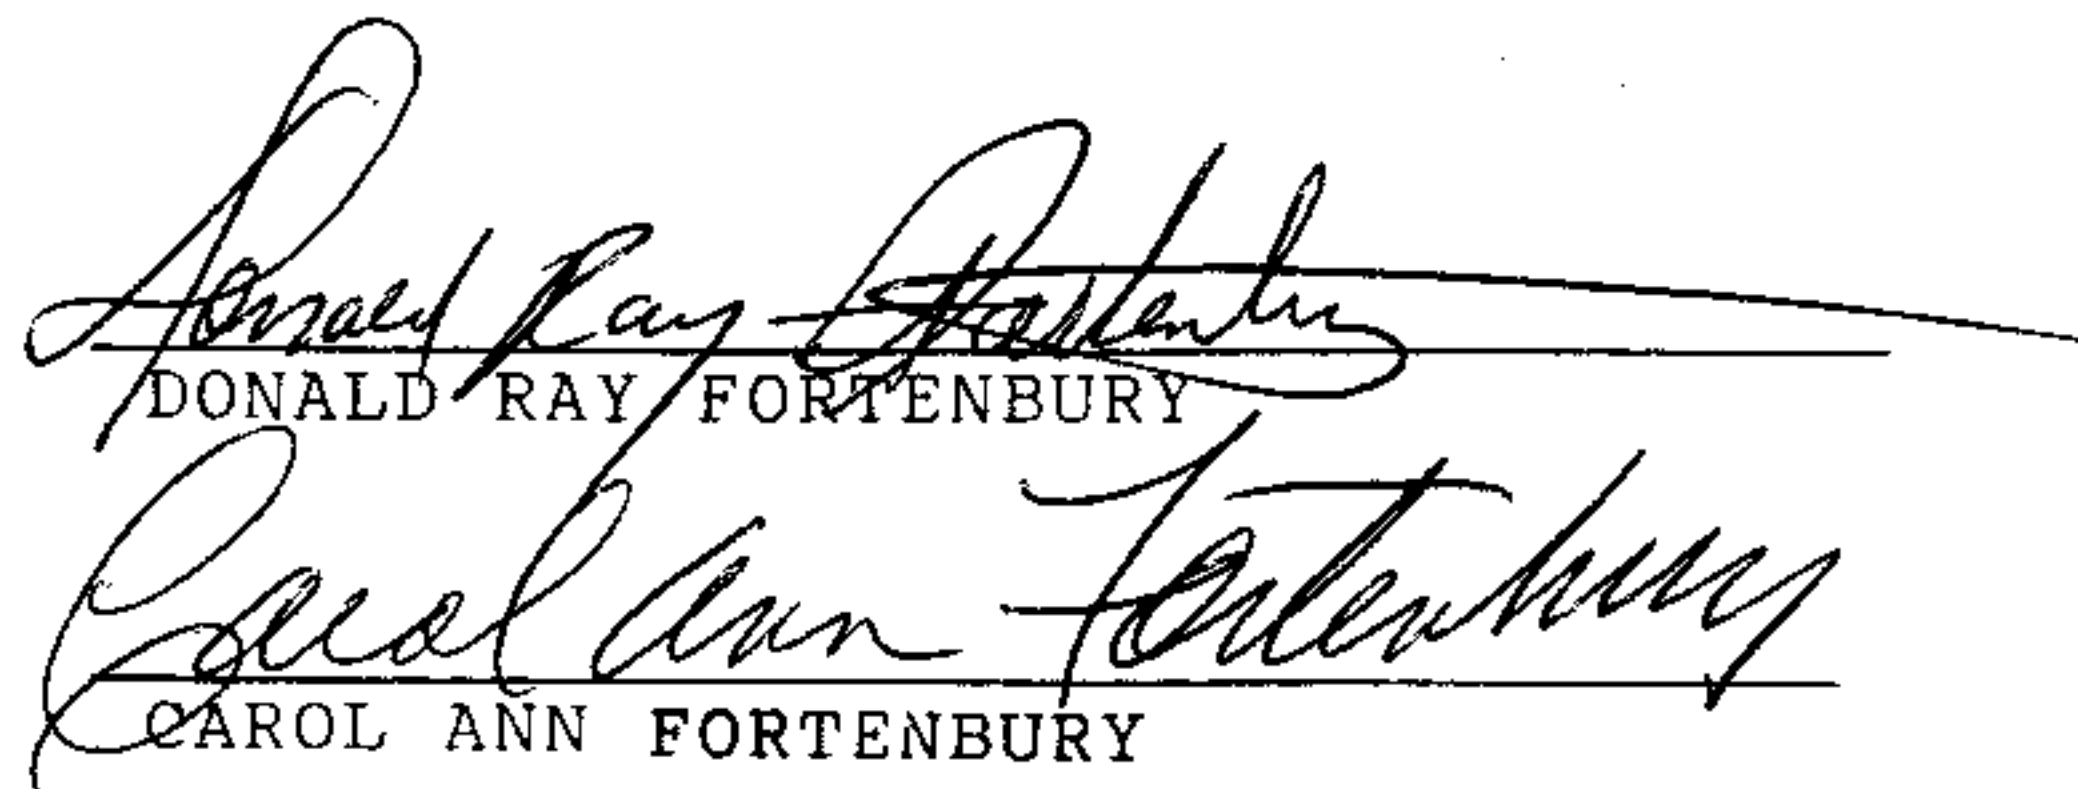 Donald Ray Fortenbury
DONALD RAY FORTENBURY
Carol Ann Fortenbury
CAROL ANN FORTENBURY